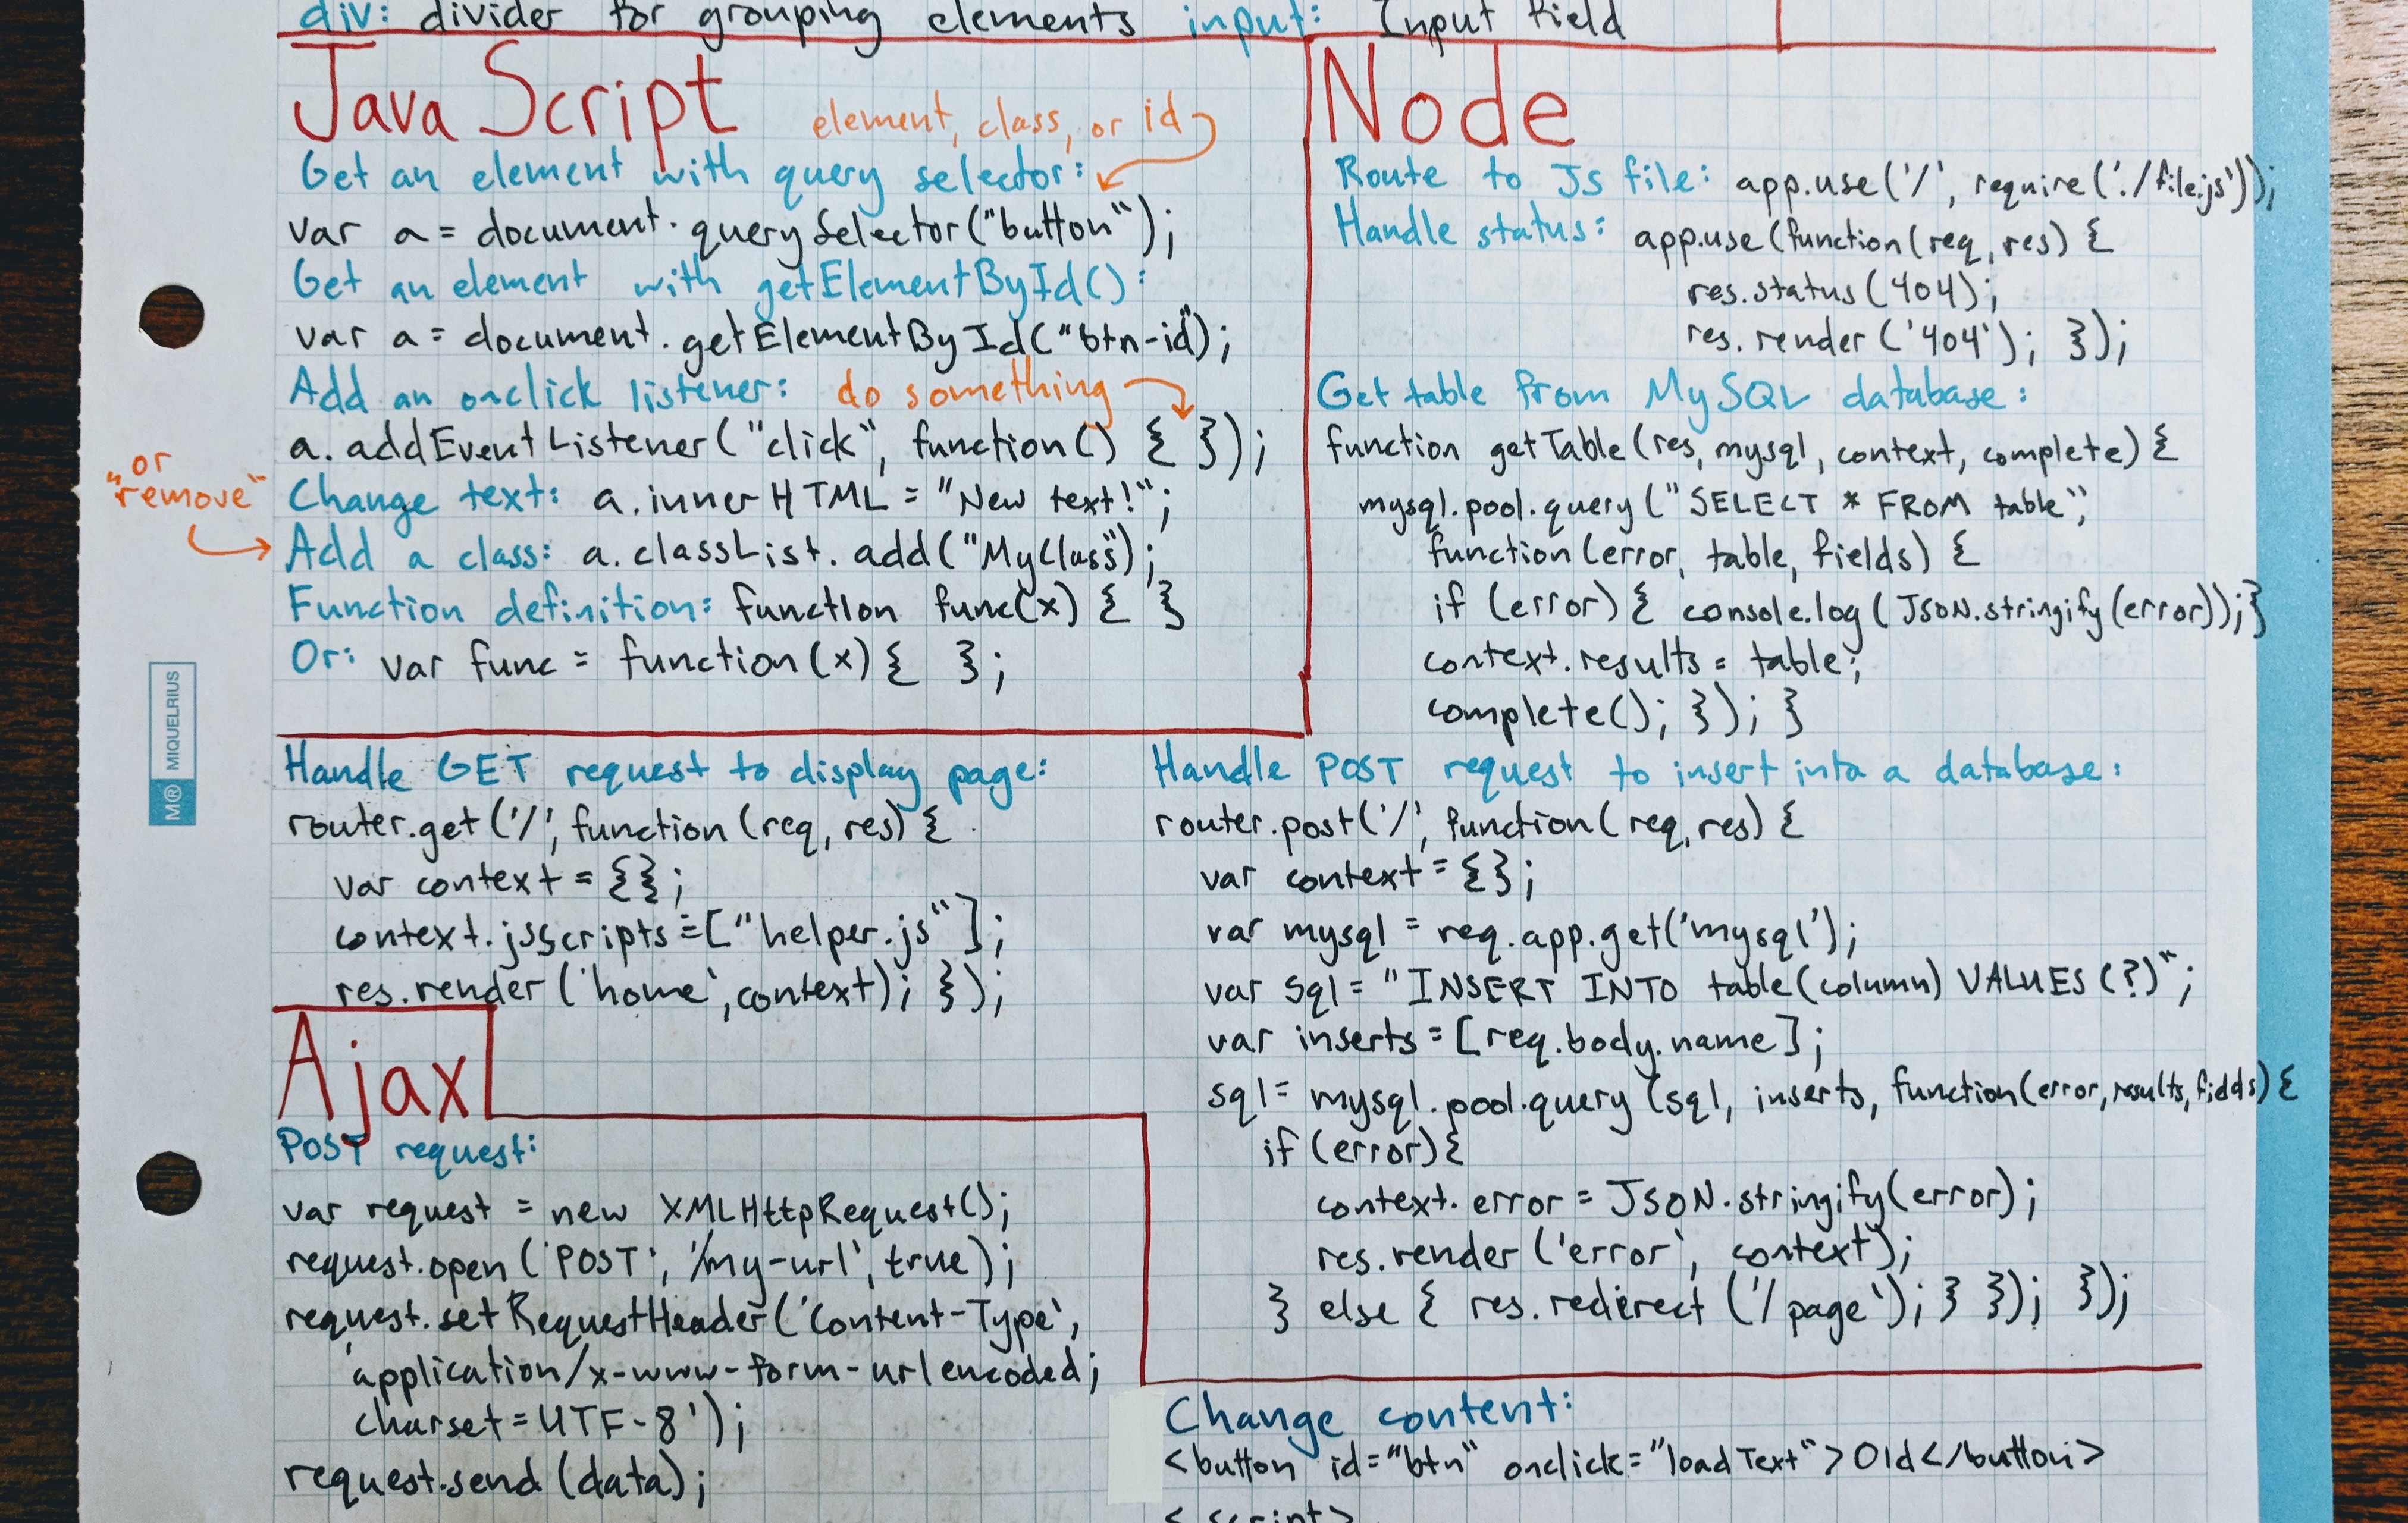 div: divider for grouping elements input: Input field
JavaScript
element, class, or id
Get an element with query selector:
var a = document.querySelector("button");
Get an element with getElementById():
var a = document.getElementById("btn-id");
Add an onclick listener: do something
a.addEventListener("click", function() { });
or
"remove"
Change text: a.innerHTML = "New text!";
Add a class: a.classList.add("MyClass");
Function definition: function func(x) { }
Or: var func = function(x) { };
Node
Route to JS file: app.use('/', require('./file.js'));
Handle status: app.use(function(req, res) {
res.status(404);
res.render('404'); });
Get table from MySQL database:
function getTable(res, mysql, context, complete) {
mysql.pool.query("SELECT * FROM table",
function(error, table, fields) {
if (error) { console.log(JSON.stringify(error)); }
context.results = table;
complete(); }); }
M® MIQUELRIUS
Handle GET request to display page:
router.get('/', function(req, res) {
var context = {};
context.jsscripts = ["helper.js"];
res.render('home', context); });
Handle POST request to insert into a database:
router.post('/', function(req, res) {
var context = {};
var mysql = req.app.get('mysql');
var sql = "INSERT INTO table(column) VALUES (?)";
var inserts = [req.body.name];
sql = mysql.pool.query(sql, inserts, function(error, results, fields) {
if (error) {
context.error = JSON.stringify(error);
res.render('error', context);
} else { res.redirect('/page'); } }); });
Ajax
POST request:
var request = new XMLHttpRequest();
request.open('POST', '/my-url', true);
request.setRequestHeader('Content-Type',
'application/x-www-form-urlencoded;
charset=UTF-8');
request.send(data);
Change content:
<button id="btn" onclick="loadText">Old</button>
<script>